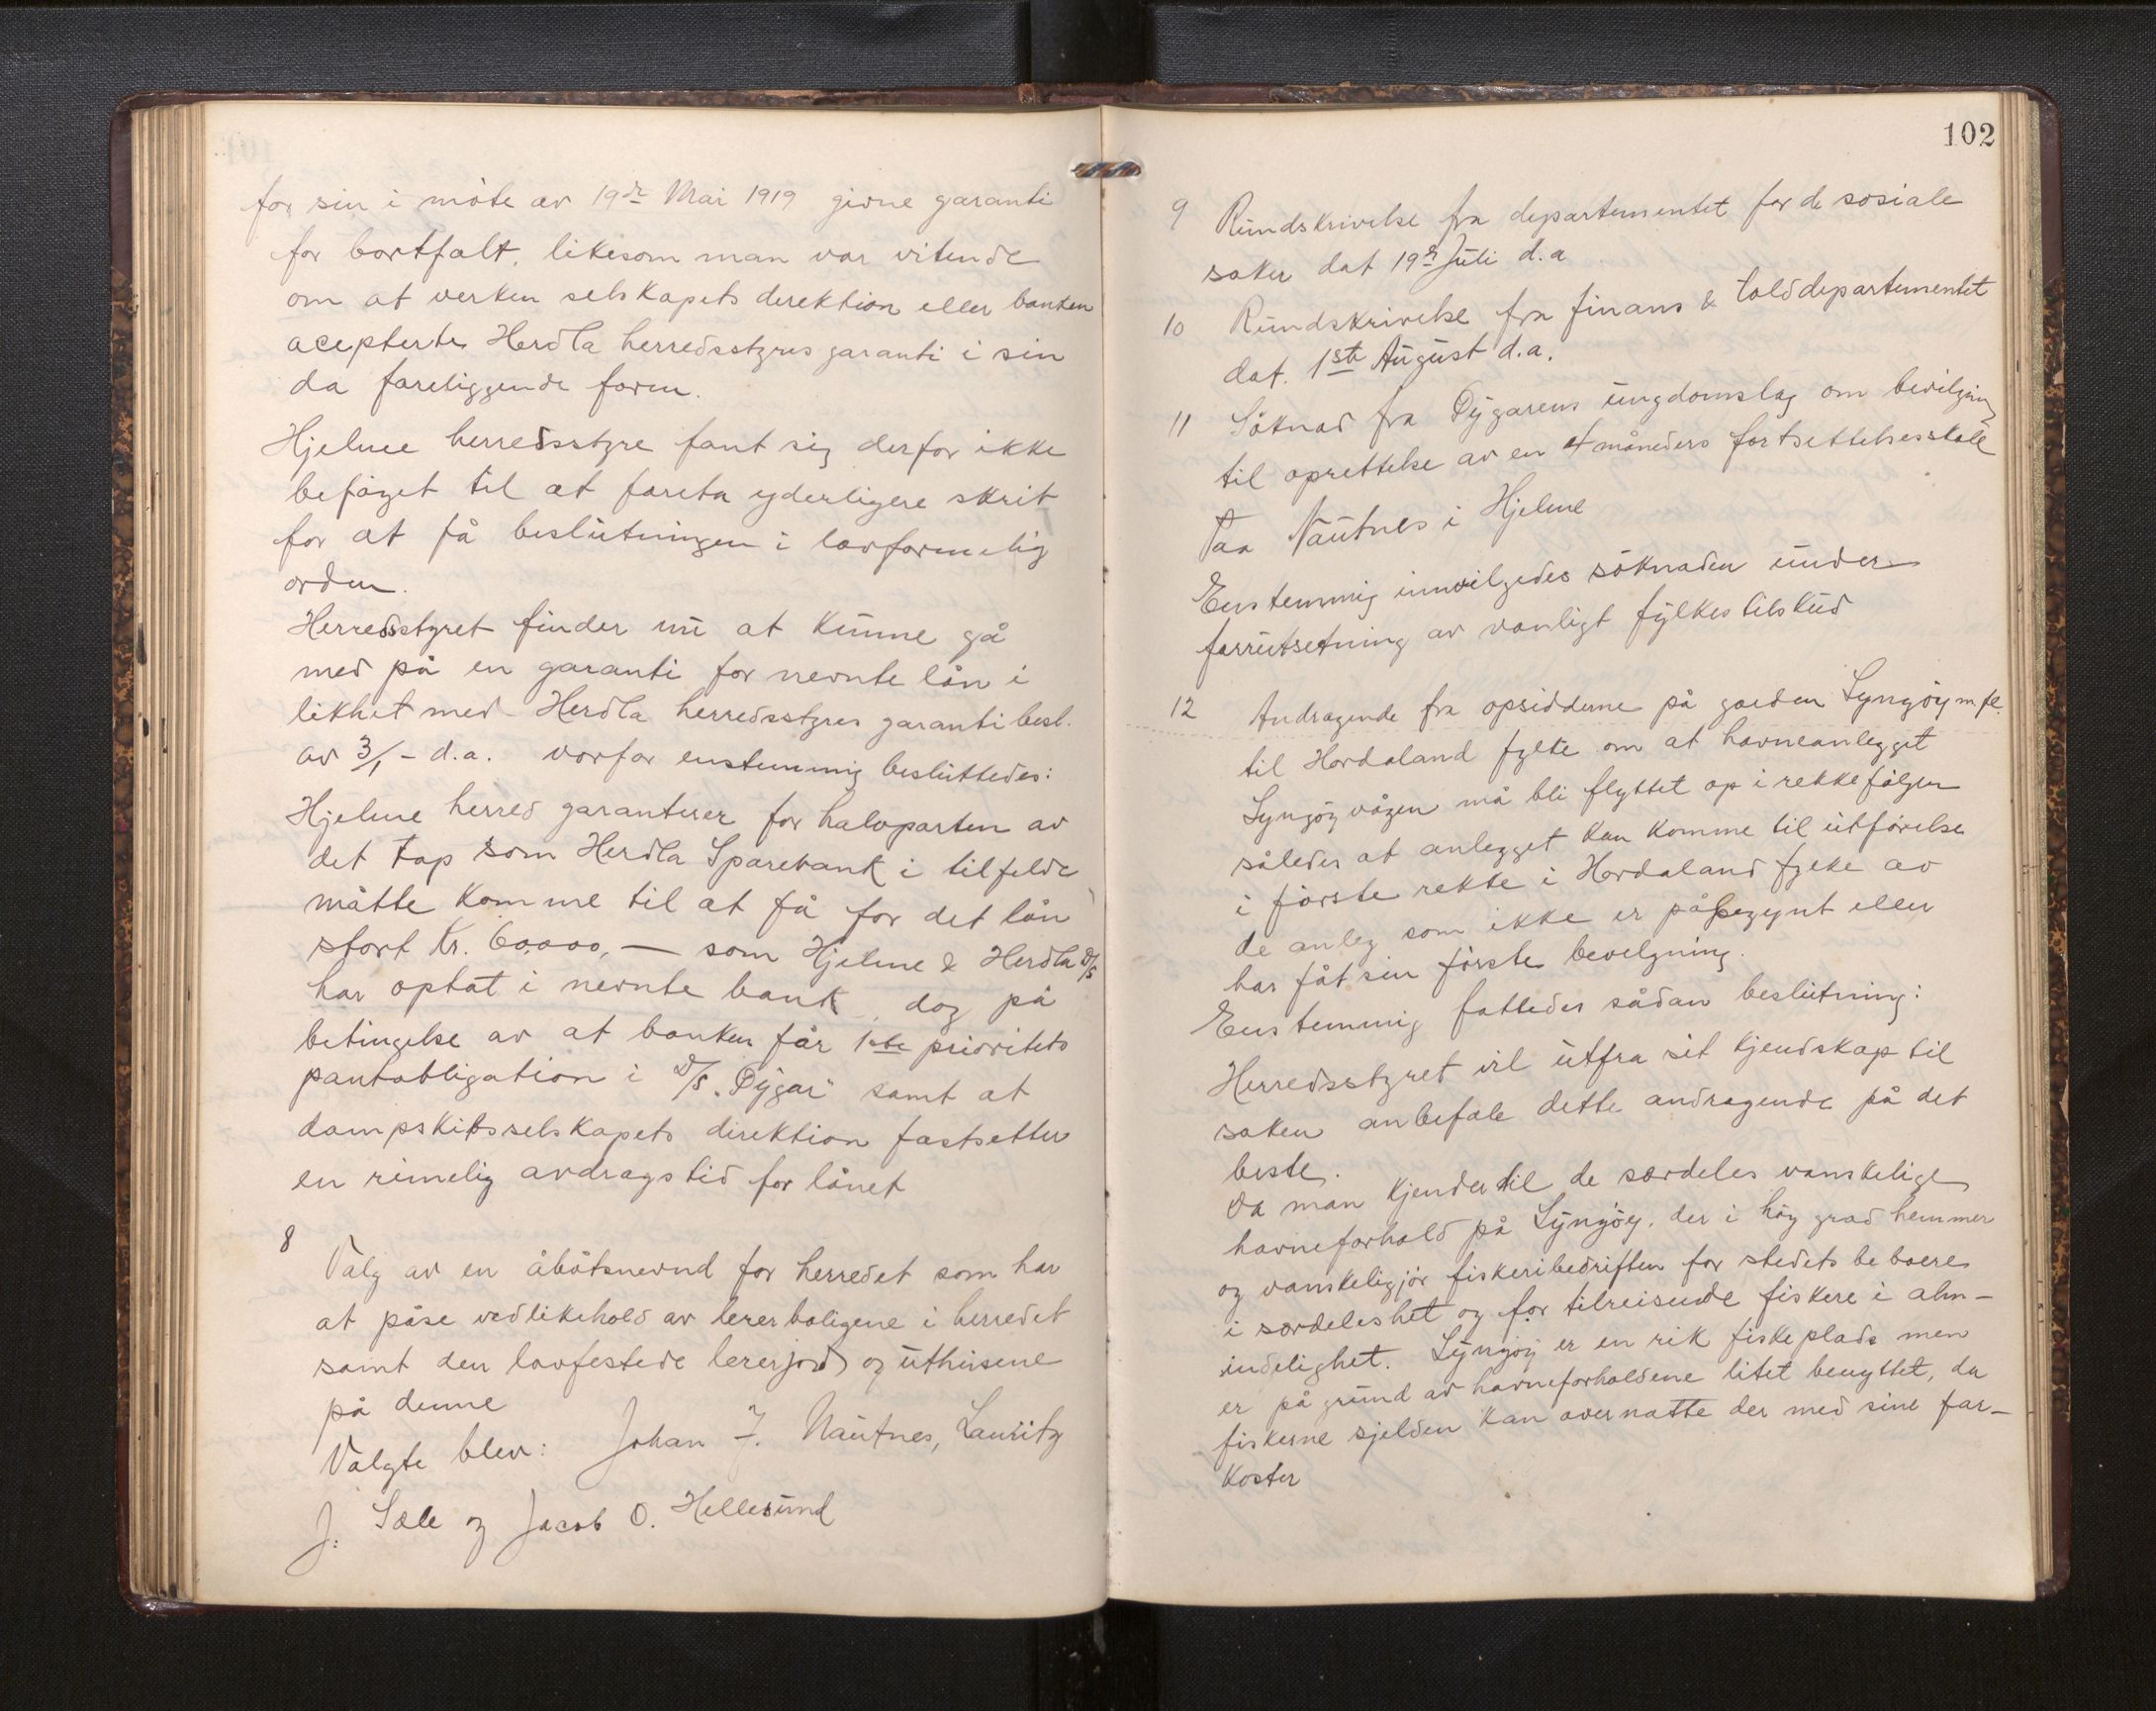 for sin i möte av 19de Mai 1919 givne garanti
for bortfalt, likesom man var vitende
om at verken selskapets direktion eller banken
acepterte Herdla herredsstyres garanti i sin
da foreliggende form.
Hjelme herredsstyre fant sig derfor ikke
beföget til at foreta yderligere skrit
for at få beslutningen i lovformelig
orden.
Herredsstyret finder nu at kunne gå
med på en garanti for nevnte lån i
likhet med Herdla herredsstyres garanti besl.
av 3/1 - d.a. vorfor enstemmig besluttedes:
Hjelme herred garanterer for halvparten av
det tap som Herdla Sparebank i tilfelde
måtte komme til at få for det lån
stort kr. 60,000,— som Hjelme & Herdla D/S
har optat i nevnte bank, dog på
betingelse av at banken får 1ste prioritets
pantobligation i D/S. "Øygar" samt at
dampskibsselskapets direktion fastsetter
en rimelig avdragstid for lånet
8
Valg av en åbötsnevnd for herredet som har
at påse vedlikehold av lererboligene i herredet
samt den lovfestede lererjord og uthusene
på denne
Valgte blev: Johan J. Nautnes, Lauritz
J. Sæle og Jacob O. Hellesund
102
9 Rundskrivelse fra departementet for de sosiale
saker dat 19de Juli d.a
10 Rundskrivelse fra finans & tolddepartementet
dat. 1ste August d.a.
11 Söknad fra Øygarens ungdomslag om bevilgning
til oprettelse av en 4 måneders fortsettelsesskole
Paa Nautnes i Hjelme
Enstemmig innvilgedes söknaden under
forrutsetning av vanligt fylkestilskud
12 Andragende fra opsidderne på gården Lyngöy m.fl.
til Hordaland fylke om at havneanlegget
Lyngöyvågen må bli flyttet op i rekkefölgen
således at anlegget kan komme til utförelse
i förste rekke i Hordaland fylke av
de anleg som ikke er påbegynt eller
har fåt sin förste bevelgning.
Enstemmig fattedes sådan beslutning:
Herredsstyret vil utfra sit kjendskap til
saken anbefale dette andragende på det
beste.
Da man kjender til de særdeles vanskelige
havneforhold på Lyngöy, der i höy grad hemmer
og vanskeligjör fiskeribedriften for stedets beboere
i særdeleshet og for tilreisende fiskere i alm-
indelighet. Lyngöy er en rik fiskeplads men
er på grund av havneforholdene litet benyttet, da
fiskerne sjelden kan overnatte der med sine far-
koster